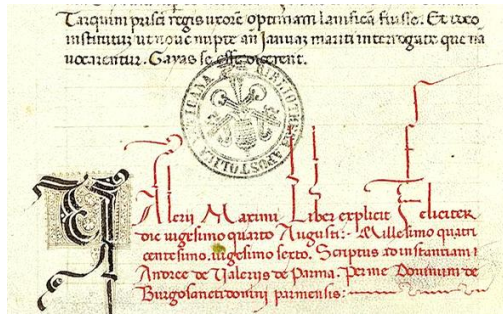 Tarquini prisci regis uxore optimam lanifica fuisse. Et ideo
institutũ ut noue nupte añ januaz mariti interrogate que nã
uocarentur. Gayas se esse dicerent.
BIBLIOTHECA APOSTOLICA VATICANA
Valerii Maximi Liber explicit Feliciter
die uigesimo quarto Augusti:- Millesimo quatri
centesimo. uigesimo sexto. Scriptus ad instantiam
Andree de Valeriis de Parma. Per me Dominum de
Burgosanctidonini parmensis: